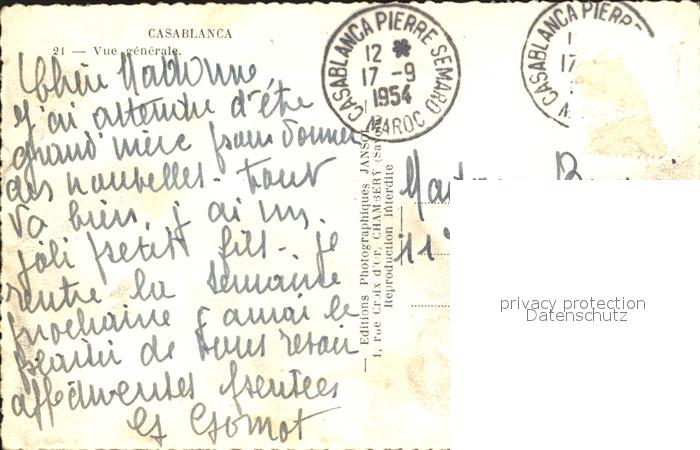 CASABLANCA
21 — Vue générale.
Chère Madame,
J'ai attendu d'être
grand'mère pour donner
des nouvelles - tout
va bien, j'ai un
joli petit fils - je
rentre la semaine
prochaine & aurai le
plaisir de vous revoir
affectueuses pensées
CASABLANCA PIERRE SEMARD
12 *
17 -9
1954
MAROC
CASABLANCA PIERR
17
— Editions Photographiques JANSOL
1, rue Croix d'Or, CHAMBÉRY (Sav
Reproduction interdite
privacy protection
Datenschutz